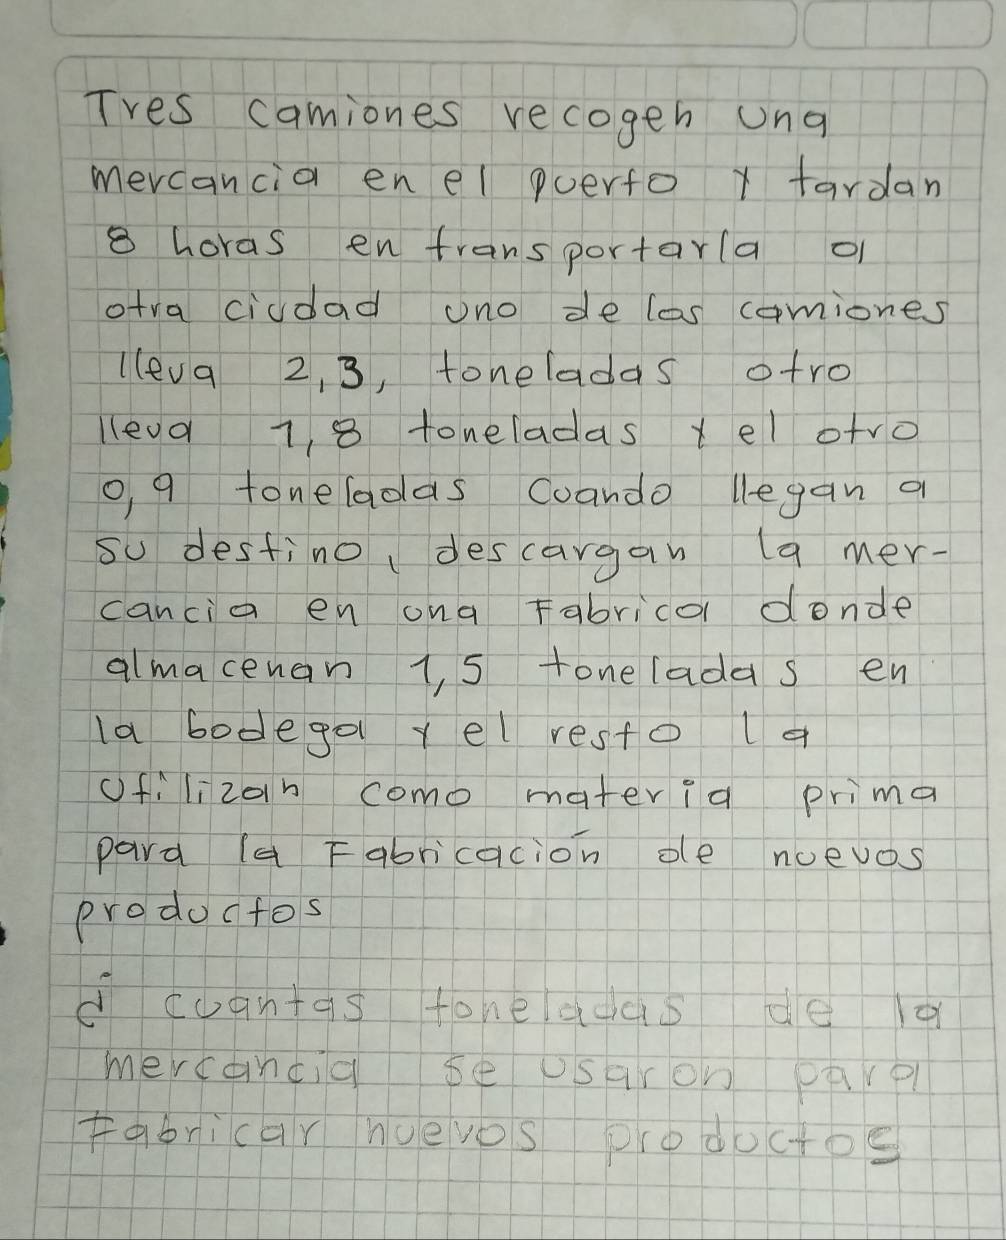 Tres camiones recogen una
mercancia en el puerto y tardan
8 horas en transportarla a
otra ciudad uno de los camiones
lleva 2,3, toneladas otro
lleva 1,8 toneladas y el otro
0,9 toneladas Cuando llegan a
su destino, descargan la mer-
cancia en una Fabrica donde
almacenan 1,5 toneladas en
la bodega y el resto la
utilizan como materia prima
para la Fabricación de nuevos
productos
¿ cuantas toneladas de la
mercancia se usaron para
Fabricar nuevos productos